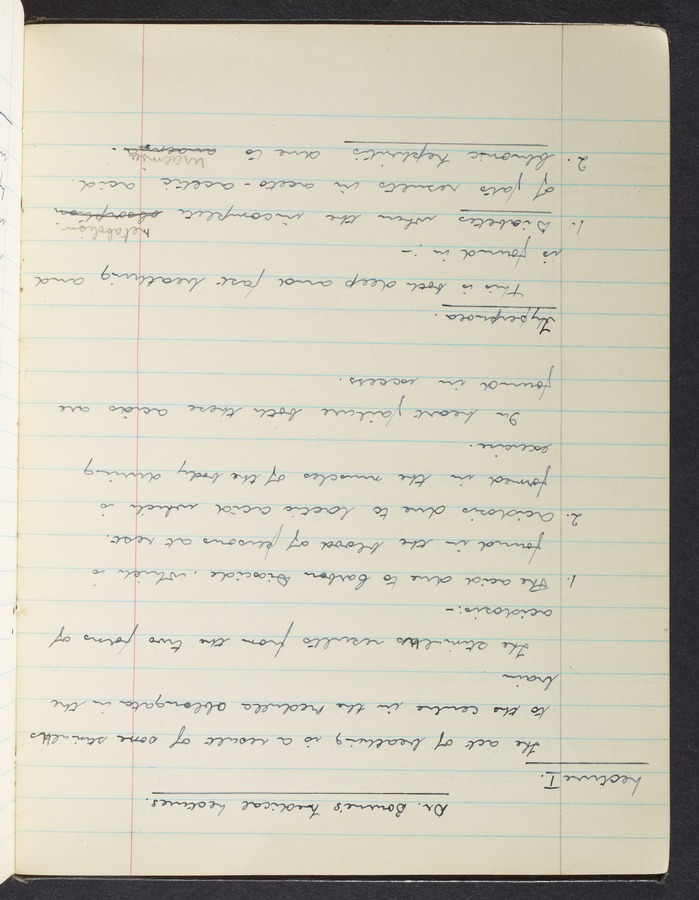 Dr. Bourne's Medical Lectures.
Lecture I.
The act of breathing is a result of some stimulus
to the centre in the Medulla oblongata in the
brain
The stimulus results from the two forms of
acidosis:-
1. The acid due to Carbon Dioxide, which is
found in the blood of persons at rest.
2. Acidosis due to lactic acid which is
formed in the muscles of the body during
exercise.
In heart failure both these acids are
found in excess.
Hyperpnoea.
This is both deep and fast breathing and
is found in :-
metabolism.
1. Diabetes when the incomplete absorption
of fats results in aceto-acetic acid.
2. Chronic Nephritis due to anaemia.
uraemia